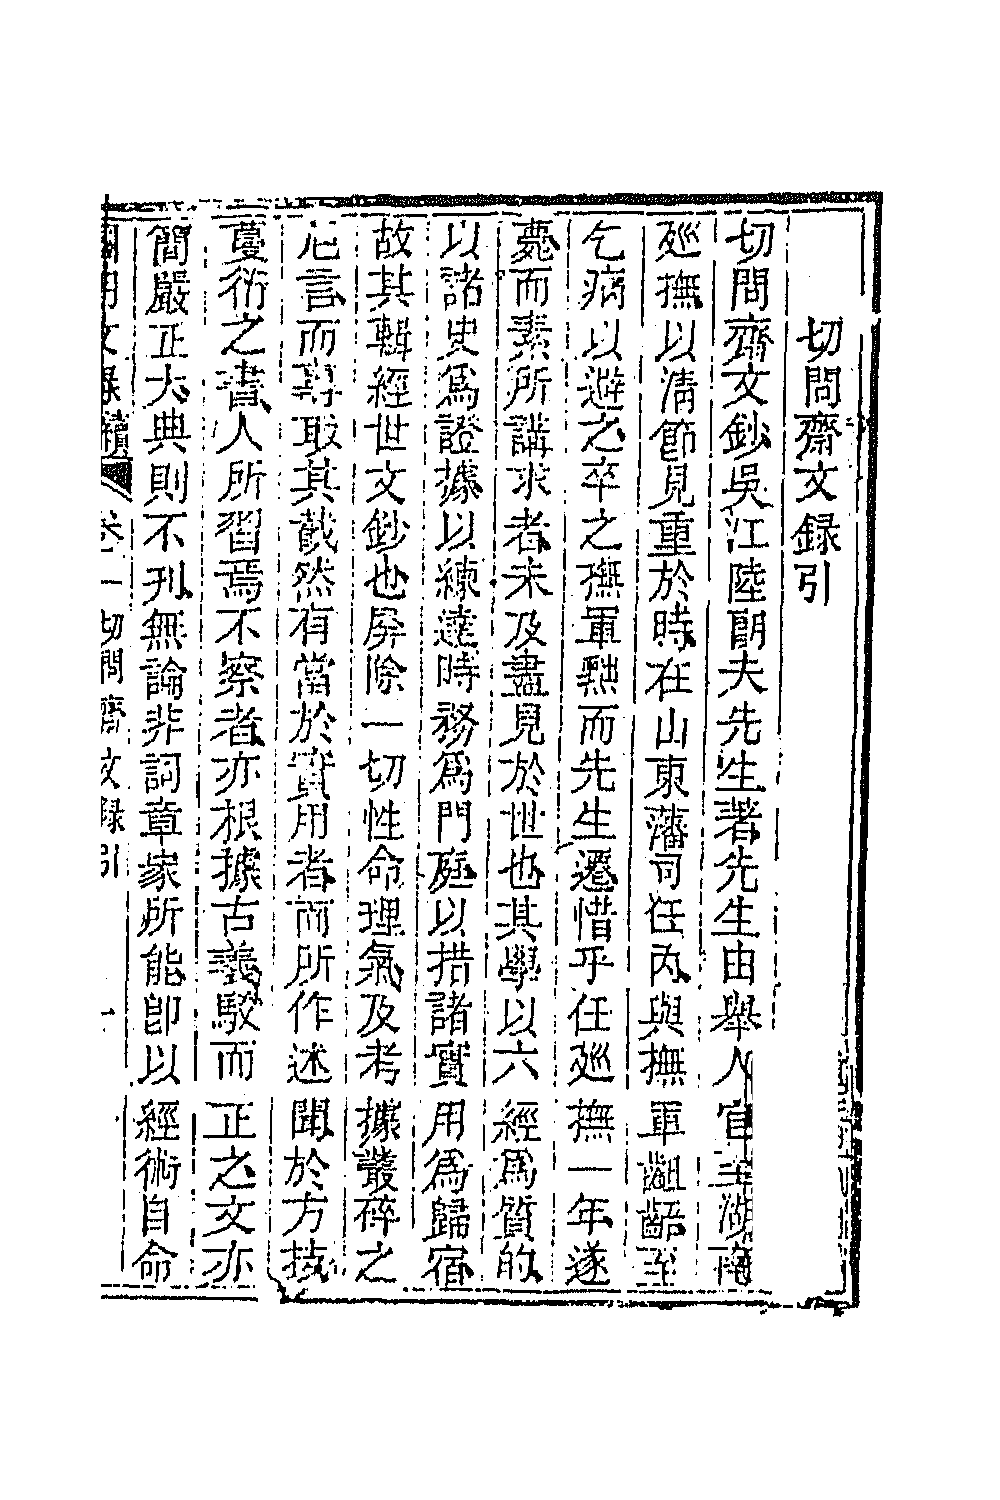 切問齋文録引
切問齋文鈔吳江陸朗夫先生著先生由舉人官至湖南
廵撫以清節見重於時在山東藩司任內與撫軍齟齬至
乞病以避之卒之撫軍黜而先生遷惜乎任廵撫一年遂
薨而素所講求者未及盡見於世也其學以六經爲質的
以諸史爲證據以練達時務爲門庭以措諸實用爲歸宿
故其輯經世文鈔也屏除一切性命理氣及考據叢碎之
卮言而專取其截然有當於實用者而所作述聞於方技
蔓衍之書人所習焉不察者亦根據古義駁而正之文亦
簡嚴正大典則不刊無論非詞章家所能卽以經術自命
文录續 卷一 切問齋文録引